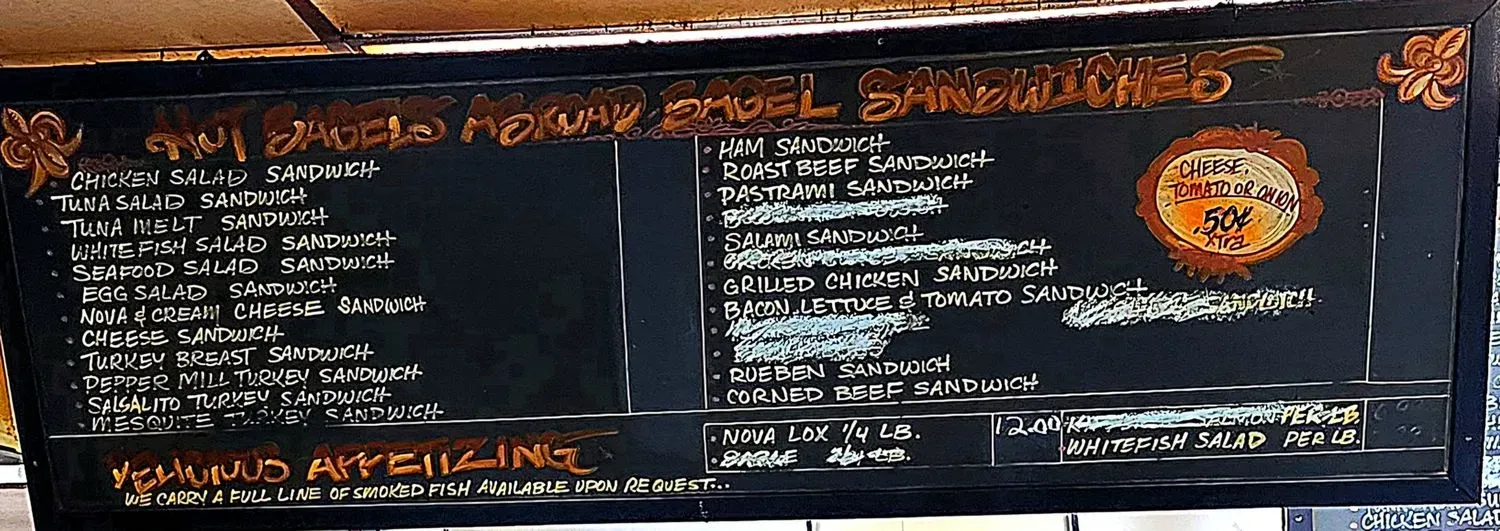 HOT BAGELS ABROAD BAGEL SANDWICHES
CHICKEN SALAD SANDWICH
TUNA SALAD SANDWICH
TUNA MELT SANDWICH
WHITEFISH SALAD SANDWICH
SEAFOOD SALAD SANDWICH
EGG SALAD SANDWICH
NOVA & CREAM CHEESE SANDWICH
CHEESE SANDWICH
TURKEY BREAST SANDWICH
PEPPER MILL TURKEY SANDWICH
SALSALITO TURKEY SANDWICH
MESQUITE TURKEY SANDWICH
HAM SANDWICH
ROAST BEEF SANDWICH
PASTRAMI SANDWICH
SALAMI SANDWICH
GRILLED CHICKEN SANDWICH
BACON LETTUCE & TOMATO SANDWICH
RUEBEN SANDWICH
CORNED BEEF SANDWICH
CHEESE,
TOMATO OR ONION
.50¢
XTRA
DELICIOUS APPETIZING
WE CARRY A FULL LINE OF SMOKED FISH AVAILABLE UPON REQUEST...
NOVA LOX 1/4 LB.
12.00
PER LB.
WHITEFISH SALAD PER LB.
CHICKEN SALA